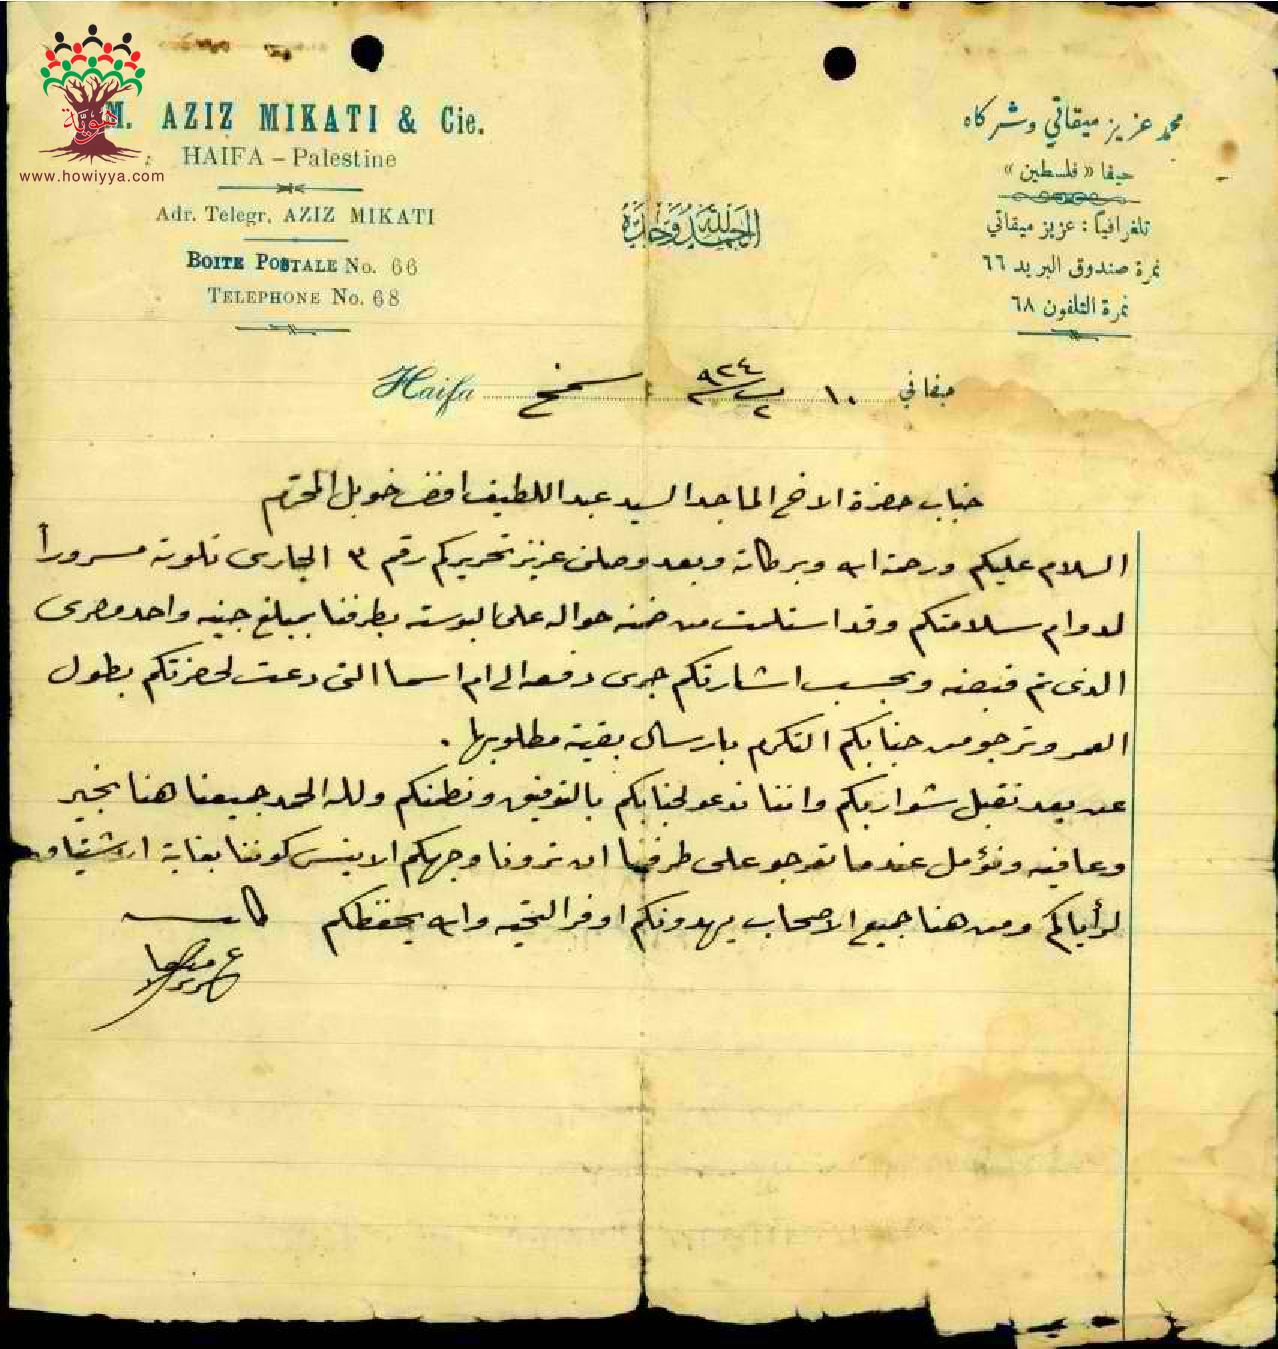 هوية
www.howiyya.com
M. AZIZ MIKATI & Cie.
HAIFA – Palestine
Adr. Telegr, AZIZ MIKATI
BOITE POSTALE No. 66
TELEPHONE No. 68
الحمد لله وحده
محمد عزيز ميقاتي وشركاه
حيفا « فلسطين »
تلغرافياً : عزيز ميقاتي
نمرة صندوق البريد ٦٦
نمرة التلفون ٦٨
Haifa حيفا في ١٠ ٢ ٩٢٤
جناب حضرة الاخ الماجد السيد عبد اللطيف المحترم
السلام عليكم ورحمة الله وبركاته وبعد وصلني عزيز تحريركم رقم ٣ الجاري تلوته مسروراً
لدوام سلامتكم وقد استلمت من ضمنه حواله على البوسته بطرفنا بمبلغ جنيه واحد مصري
الذي تم قبضه وبحسب اشارتكم جرى دفعه الى ام اسما التي دعت لحضرتكم بطول
العمر وترجو من جنابكم التكرم بارسال بقية مطلوبها .
واننا ندعو لجنابكم بالتوفيق ونطمنكم ولله الحمد جميعنا هنا بخير
وعافيه ونؤمل عندما على طرفنا ان ترونا وجهكم الانيس كوننا بغاية الاشتياق
لرأياكم ومن هنا جميع الاصحاب يهدونكم اوفر التحيه والله يحفظكم